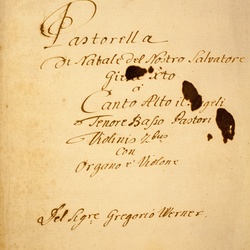 Pastorella
di Natale del Nostro Salvatore
Giesu Xto
à
Canto Alto il Angeli
Tenore Basso Pastori
Violinis 2bus
Con
Organo è Violone
Del Sigre Gregorio Werner.